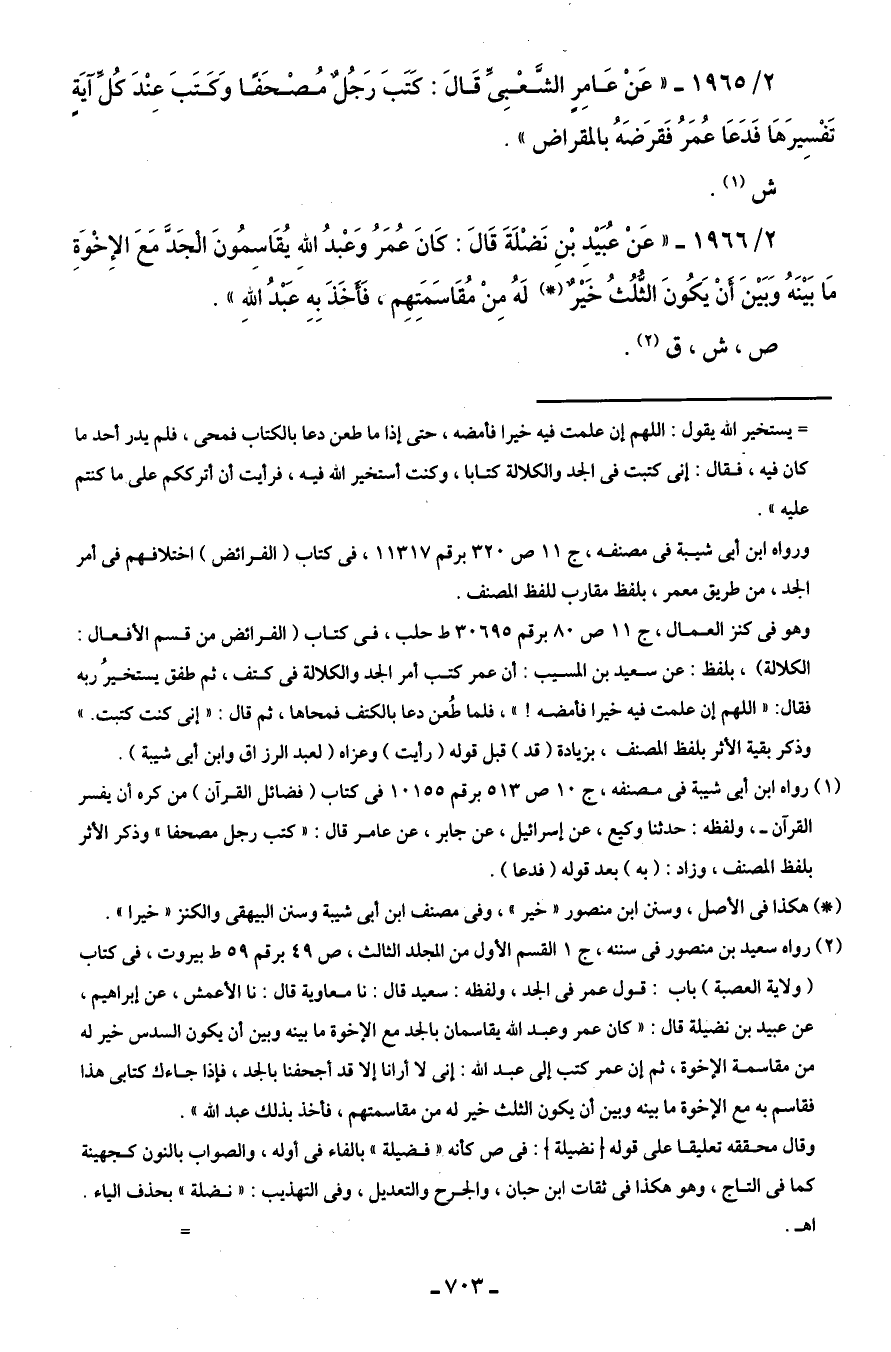 ٢/ ١٩٦٥ ـ « عَنْ عَامِرٍ الشَّعْبِىِّ قَالَ : كَتَبَ رَجُلٌ مُصْحَفًا وَكَتَبَ عِنْدَ كُلِّ آيَةٍ
تَفْسِيرَهَا فَدَعَا عُمَرُ فَقَرَضَهُ بالمقراض » .
ش (١) .
٢/ ١٩٦٦ ـ « عَنْ عُبَيْدِ بْنِ نَضْلَةَ قَالَ : كَانَ عُمَرُ وَعَبْدُ اللهِ يُقَاسِمُونَ الْجَدَّ مَعَ الإِخْوَةِ
مَا بَيْنَهُ وَبَيْنَ أَنْ يَكُونَ الثُّلُثُ خَيْرٌ (*) لَهُ مِنْ مُقَاسَمَتِهِم ، فَأَخَذَ بِهِ عَبْدُ اللهِ » .
ص ، ش ، ق (٢) .
= يستخير الله يقول : اللهم إن علمت فيه خيرا فأمضه ، حتى إذا ما طعن دعا بالكتاب فمحى ، فلم يدر أحد ما
كان فيه ، فقال : إنى كتبت فى الجد والكلالة كتابا ، وكنت أستخير الله فيه ، فرأيت أن أترككم على ما كنتم
عليه » .
ورواه ابن أبى شيبة فى مصنفه ، ج ١١ ص ٣٢٠ برقم ١١٣١٧ ، فى كتاب ( الفرائض ) اختلافهم فى أمر
الجد ، من طريق معمر ، بلفظ مقارب للفظ المصنف .
وهو فى كنز العمال ، ج ١١ ص ٨٠ برقم ٣٠٦٩٥ ط حلب ، فى كتاب ( الفرائض من قسم الأفعال :
الكلالة) ، بلفظ : عن سعيد بن المسيب : أن عمر كتب أمر الجد والكلالة فى كتف ، ثم طفق يستخيرُ ربه
فقال: « اللهم إن علمت فيه خيرا فأمضه ! » ، فلما طُعن دعا بالكتف فمحاها ، ثم قال : « إنى كنت كتبت. »
وذكر بقية الأثر بلفظ المصنف ، بزيادة ( قد ) قبل قوله ( رأيت ) وعزاه ( لعبد الرزاق وابن أبى شيبة ) .
(١) رواه ابن أبى شيبة فى مصنفه ، ج ١٠ ص ٥١٣ برقم ١٠١٥٥ فى كتاب ( فضائل القرآن ) من كره أن يفسر
القرآن ـ ، ولفظه : حدثنا وكيع ، عن إسرائيل ، عن جابر ، عن عامر قال : « كتب رجل مصحفا » وذكر الأثر
بلفظ المصنف ، وزاد : ( به ) بعد قوله ( فدعا ) .
(*) هكذا فى الأصل ، وسنن ابن منصور « خير » ، وفى مصنف ابن أبى شيبة وسنن البيهقى والكنز « خيرا » .
(٢) رواه سعيد بن منصور فى سننه ، ج ١ القسم الأول من المجلد الثالث ، ص ٤٩ برقم ٥٩ ط بيروت ، فى كتاب
( ولاية العصبة ) باب : قول عمر فى الجد ، ولفظه : سعيد قال : نا معاوية قال : نا الأعمش ، عن إبراهيم ،
عن عبيد بن نضيلة قال : « كان عمر وعبد الله يقاسمان بالجد مع الإخوة ما بينه وبين أن يكون السدس خير له
من مقاسمة الإخوة ، ثم إن عمر كتب إلى عبد الله : إنى لا أرانا إلا قد أجحفنا بالجد ، فإذا جاءك كتابى هذا
فقاسم به مع الإخوة ما بينه وبين أن يكون الثلث خير له من مقاسمتهم ، فأخذ بذلك عبد الله » .
وقال محققه تعليقا على قوله { نضيلة } : فى ص كأنه « فضيلة » بالفاء فى أوله ، والصواب بالنون كجهينة
كما فى التاج ، وهو هكذا فى ثقات ابن حبان ، والجرح والتعديل ، وفى التهذيب : « نضلة » بحذف الياء .
اهـ . =
ـ ٧٠٣ ـ